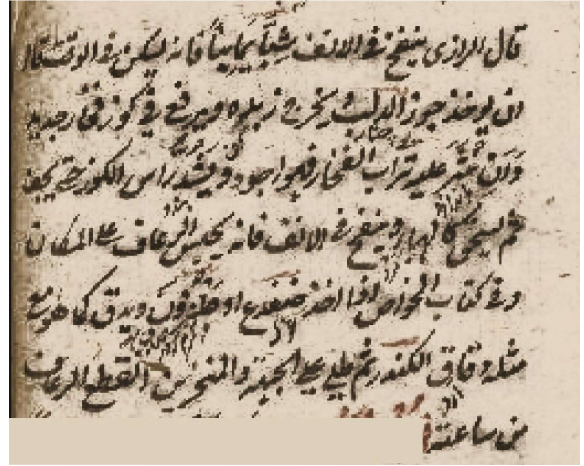 قال الرازى ينفخ فى الانف شبا يمانيا فانه يسكن فى الوقت
ان يوخذ جوز الدلب يخرج زيبره ويرفع فى كوز فخار جديد
وان نثر عليه تراب الفخار فهو اجود ويشد راس الكوز حتى يجف
ثم يسحق كالهبا وينفخ فى الانف فانه يحبس الرعاف على المكان
وفى كتاب الخواص اذا اخذ ضفدع او ويدق كما هو مع
مثله دقاق الكندر ثم طلى على الجبهة والمنخرين انقطع الرعاف
من ساعته